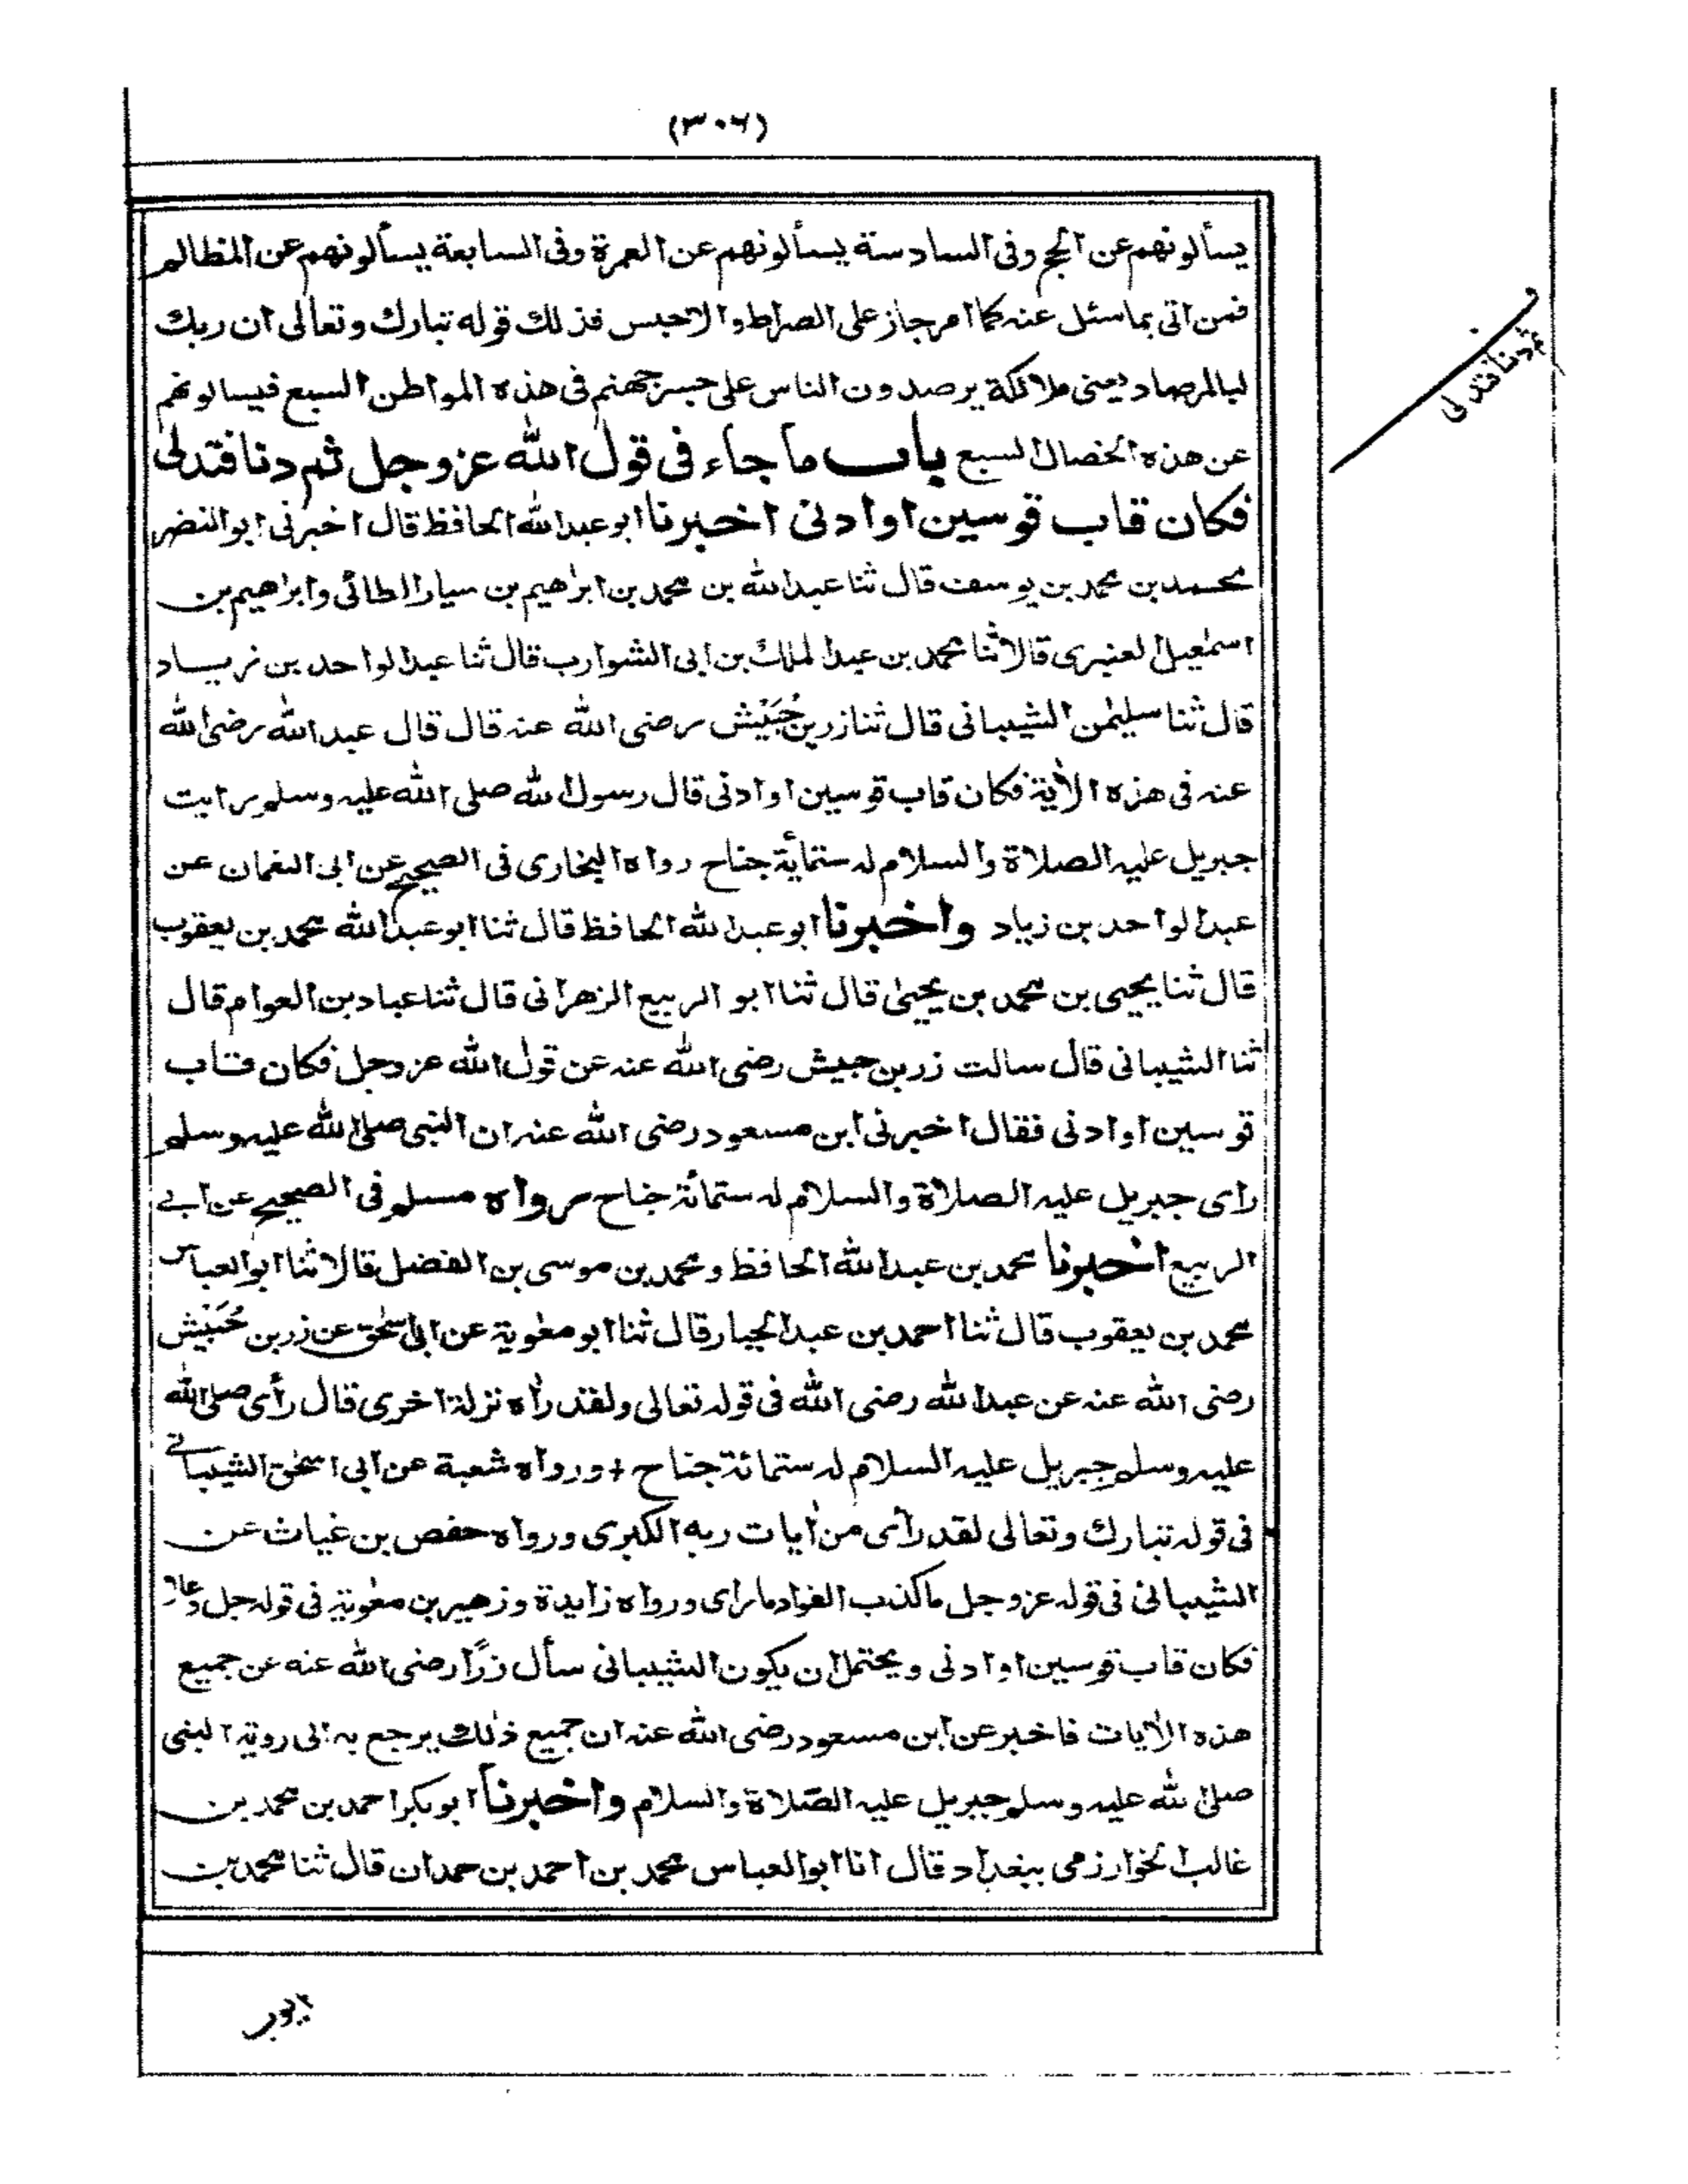 (٣٠٦)
يسألونهم عن الحج وفى السادسة يسألونهم عن العمرة وفى السابعة يسألونهم عن المظالم
فمن اتى بما سئل عنه كما امر جاز على الصراط والا حبس فذلك قوله تبارك وتعالى ان ربك
لبالمرصاد يعنى ملائكة يرصدون الناس على جسر جهنم فى هذه المواطن السبع فيسالونهم
عن هذه الخصال السبع باب ما جاء فى قول الله عز وجل ثم دنا فتدلى
فكان قاب قوسين او ادنى اخبرنا ابو عبد الله الحافظ قال اخبرنى ابو النضر
محمد بن محمد بن يوسف قال ثنا عبد الله بن محمد بن ابرٰهيم بن سيار الطائى وابرٰهيم بن
اسمٰعيل العنبرى قالا ثنا محمد بن عبد الملك بن ابى الشوارب قال ثنا عبد الواحد بن زياد
قال ثنا سليمٰن الشيبانى قال ثنا زر بن حُبَيْش رضى الله عنه قال قال عبد الله رضى الله
عنه فى هذه الاٰية فكان قاب قوسين او ادنى قال رسول الله صلى الله عليه وسلم رايت
جبريل عليه الصلاة والسلام له ستمأية جناح رواه البخارى فى الصحيح عن ابى النعمان عن
عبد الواحد بن زياد واخبرنا ابو عبد الله الحافظ قال ثنا ابو عبد الله محمد بن يعقوب
قال ثنا يحيى بن محمد بن يحيىٰ قال ثنا ابو الربيع الزهرانى قال ثنا عباد بن العوام قال
ثنا الشيبانى قال سالت زر بن حبيش رضى الله عنه عن قول الله عز وجل فكان قاب
قوسين او ادنى فقال اخبرنى ابن مسعود رضى الله عنه ان النبى صلى الله عليه وسلم
راى جبريل عليه الصلاة والسلام له ستمائة جناح رواه مسلم فى الصحيح عن ابى
الربيع اخبرنا محمد بن عبد الله الحافظ ومحمد بن موسى بن الفضل قالا ثنا ابو العباس
محمد بن يعقوب قال ثنا احمد بن عبد الجبار قال ثنا ابو معٰوية عن ابى اسحٰق عن زر بن حُبَيْش
رضى الله عنه عن عبد الله رضى الله فى قوله تعالى ولقد رأه نزلة اخرى قال رأى صلى الله
عليه وسلم جبريل عليه السلام له ستمائة جناح + ورواه شعبة عن ابى اسحٰق الشيبانى
فى قوله تبارك وتعالى لقد رأى من اٰيات ربه الكبرى ورواه حفص بن غياث عن
الشيبانى فى قوله عز وجل ما كذب الفواد ما راى ورواه زايدة وزهير بن معٰوية فى قوله جل وعلا
فكان قاب قوسين او ادنى ويحتمل ان يكون الشيبانى سأل زرًّا رضى الله عنه عن جميع
هذه الاٰيات فاخبر عن ابن مسعود رضى الله عنه ان جميع ذٰلك يرجع به الى روية النبى
صلى الله عليه وسلم جبريل عليه الصّلاة والسلام واخبرنا ابو بكر احمد بن محمد بن
غالب الخوارزمى ببغداد قال انا ابو العباس محمد بن احمد بن حمدان قال ثنا محمد بن
ايوب
ثم دنا فتدلى